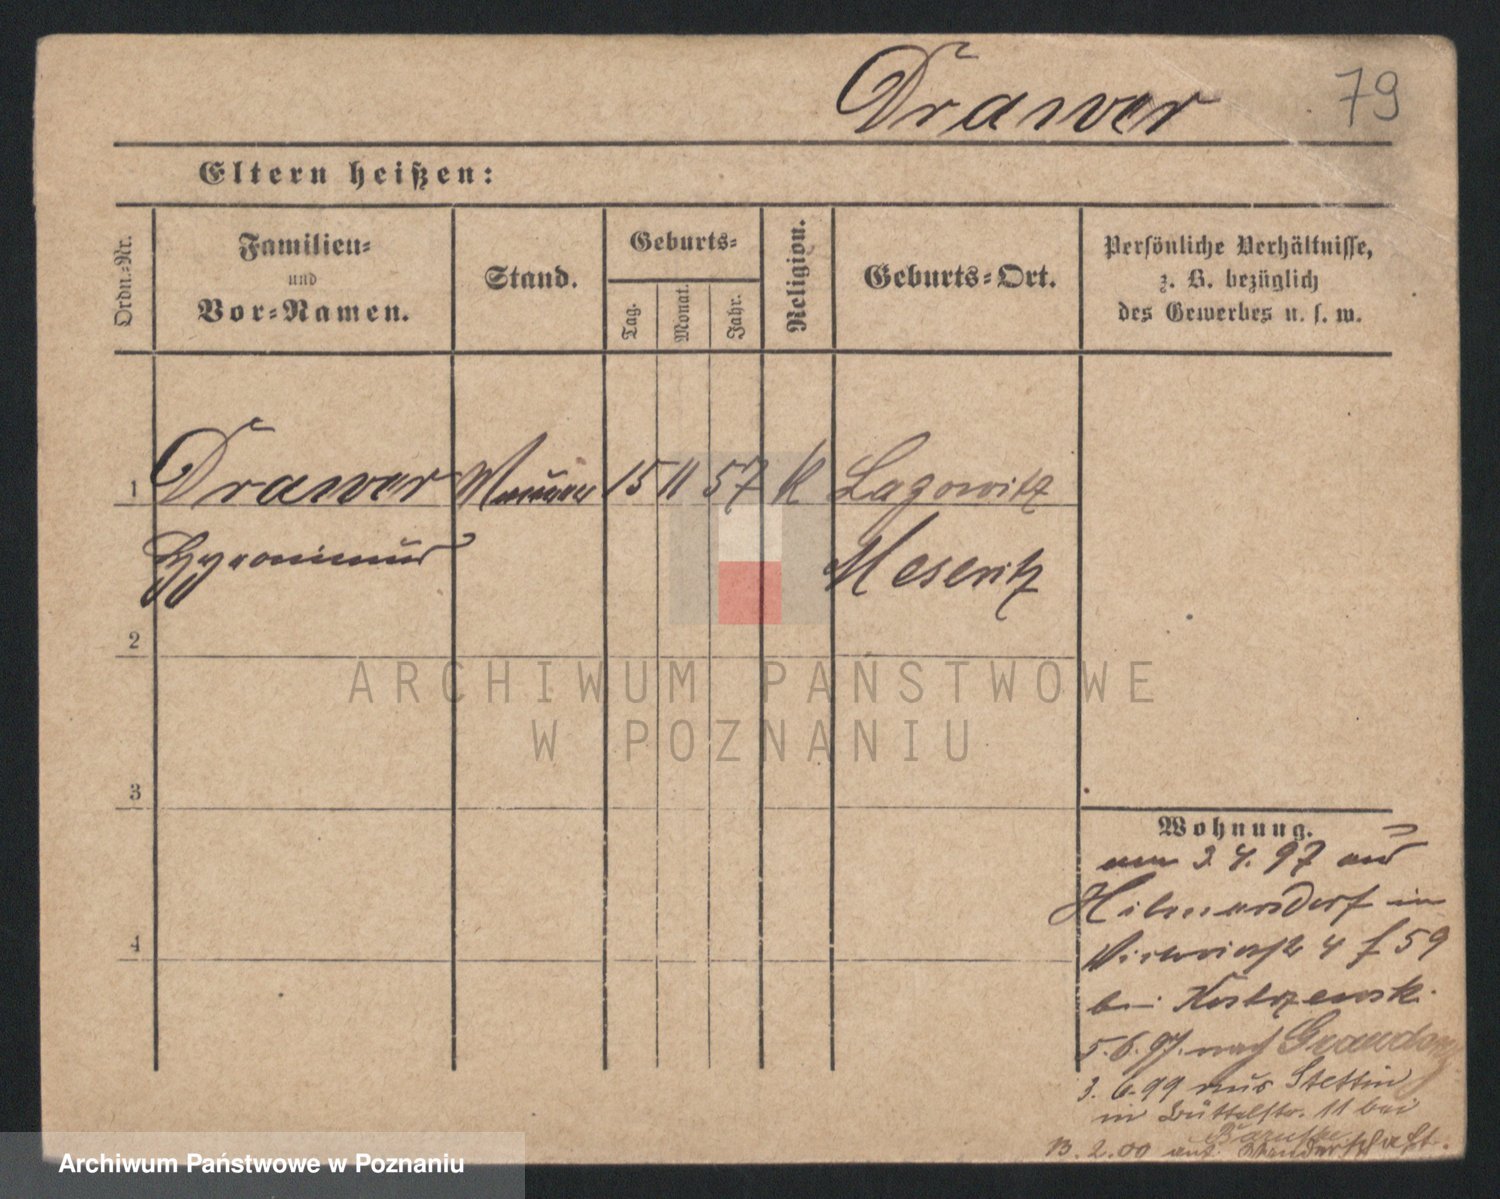 Drawer
79
Eltern heißen:
Ordn.=Nr.
Familien=
und
Vor=Namen.
Stand.
Geburts=
Tag.
Monat.
Jahr.
Religion.
Geburts=Ort.
Persönliche Verhältnisse,
z. B. bezüglich
des Gewerbes u. s. w.
1 Drawer Maurer 15 11 57 K Lagowitz
Hyronimus Meseritz
2
3
4
Wohnung.
am 3. 4. 97 aus
Hilmersdorf in
Victoriastr 4 f 59
bei Kostrzewski
5. 6. 97. nach Graudenz
3. 6. 99 aus Stettin
in Büttelstr. 11 bei
13. 2. 00 auf Wanderschaft.
ARCHIWUM PAŃSTWOWE
W POZNANIU
Archiwum Państwowe w Poznaniu